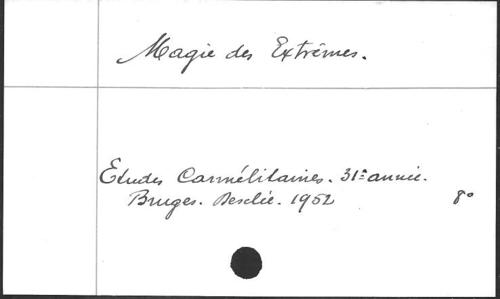 Magie des Extrêmes.
Etudes Carmélitaines. 31e année.
Bruges. Desclée. 1952 8°